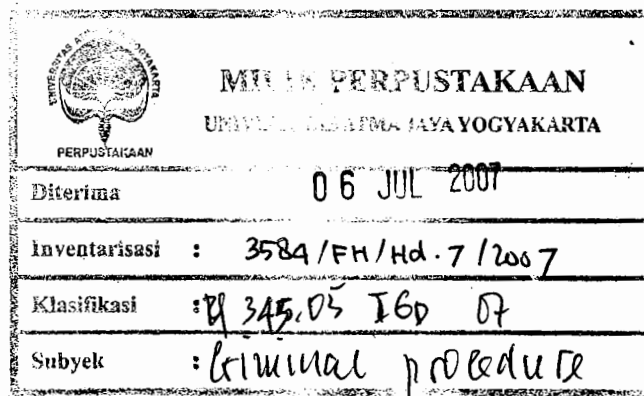 UNIVERSITAS ATMA JAYA YOGYAKARTA
PERPUSTAKAAN
MILIK PERPUSTAKAAN
UNIVERSITAS ATMA JAYA YOGYAKARTA
Diterima 06 JUL 2007
Inventarisasi : 3584/FH/Hd.7/2007
Klasifikasi : 345.05 07
Subyek : Criminal procedure